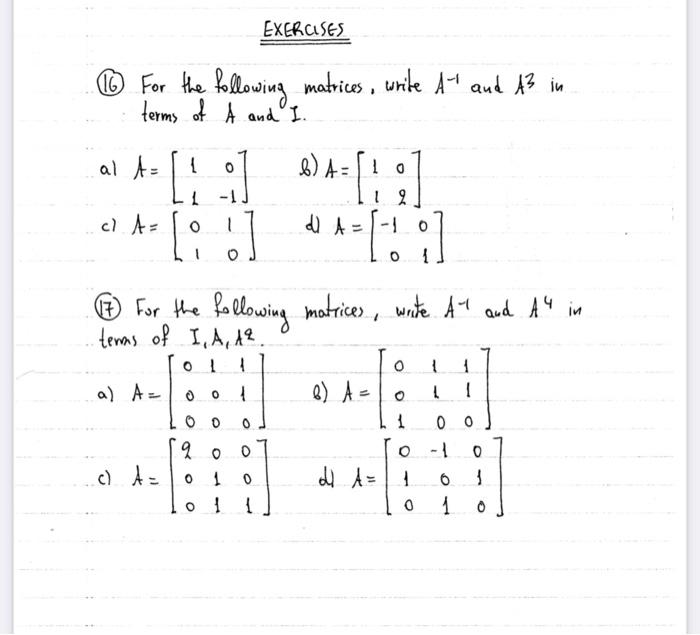 EXERCISES
(16) For the following matrices, write A⁻¹ and A³ in
terms of A and I.
a) A = [ 1 0 b) A = [ 1 0
1 -1 ] 1 2 ]
c) A = [ 0 1 d) A = [ -1 0
1 0 ] 0 1 ]
(17) For the following matrices, write A⁻¹ and A⁴ in
terms of I, A, A².
0 1 1 0 1 1
a) A = [ 0 0 1 ] b) A = [ 0 1 1 ]
0 0 0 1 0 0
2 0 0 0 -1 0
c) A = [ 0 1 0 ] d) A = [ 1 0 1 ]
0 1 1 0 1 0